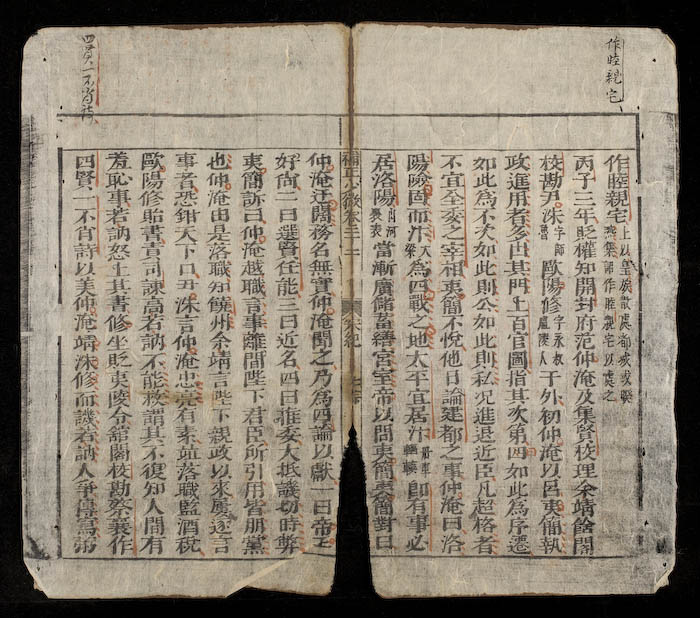 作睦親宅
作睦親宅
丙子三年貶權知開封府范仲淹及集賢校理余靖館閣
校勘尹洙字師魯歐陽修字永叔廬陵人于外初仲淹以呂夷簡執
政進用者多出其門上百官圖指其次第曰如此為序遷
如此為不次如此則公如此則私況進退近臣凡超格者
不宜全委之宰相夷簡不悅他日論建都之事仲淹曰洛
陽險固而汴大梁為四戰之地太平宜居汴即有事必
居洛陽當漸廣儲畜繕宮室帝以問夷簡夷簡對曰
補正少微卷二十二
宋紀
仲淹迂闊務名無實仲淹聞之乃為四論以獻一曰帝王
好尚二曰選賢任能三曰近名四曰推委大抵譏切時弊
夷簡訴曰仲淹越職言事離間陛下君臣所引用皆朋黨
也仲淹由是落職知饒州余靖言陛下親政以來屢逐言
事者恐鉗天下口尹洙言仲淹忠亮有素並落職監酒稅
歐陽修貽書責司諫高若訥不能救謂其不復知人間有
羞恥事若訥怒上其書修坐貶夷陵令館閣校勘蔡襄作
四賢一不肖詩以美仲淹靖洙修而譏若訥人爭傳寫鬻
四賢一不肖詩